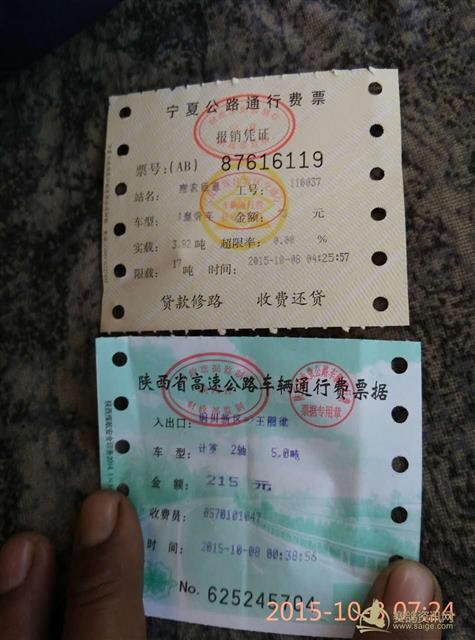 宁夏公路通行费票
报销凭证
票号:(AB) 87616119
站名: 工号: 110037
车型: 金额: 元
实载: 3.92 吨 超限率: 0.00 %
限载: 17 吨 时间: 2015-10-08 04:25:57
贷款修路 收费还贷
陕西省高速公路车辆通行费票据
票据专用章
入出口: 铜川新区 王圈梁
车 型: 计重 2轴 5.0吨
金 额: 215 元
收费员: 0570101047
时 间: 2015-10-08 00:38:56
No. 625245704
2015-10-8 07:24
赛鸽资讯网
www.saige.com